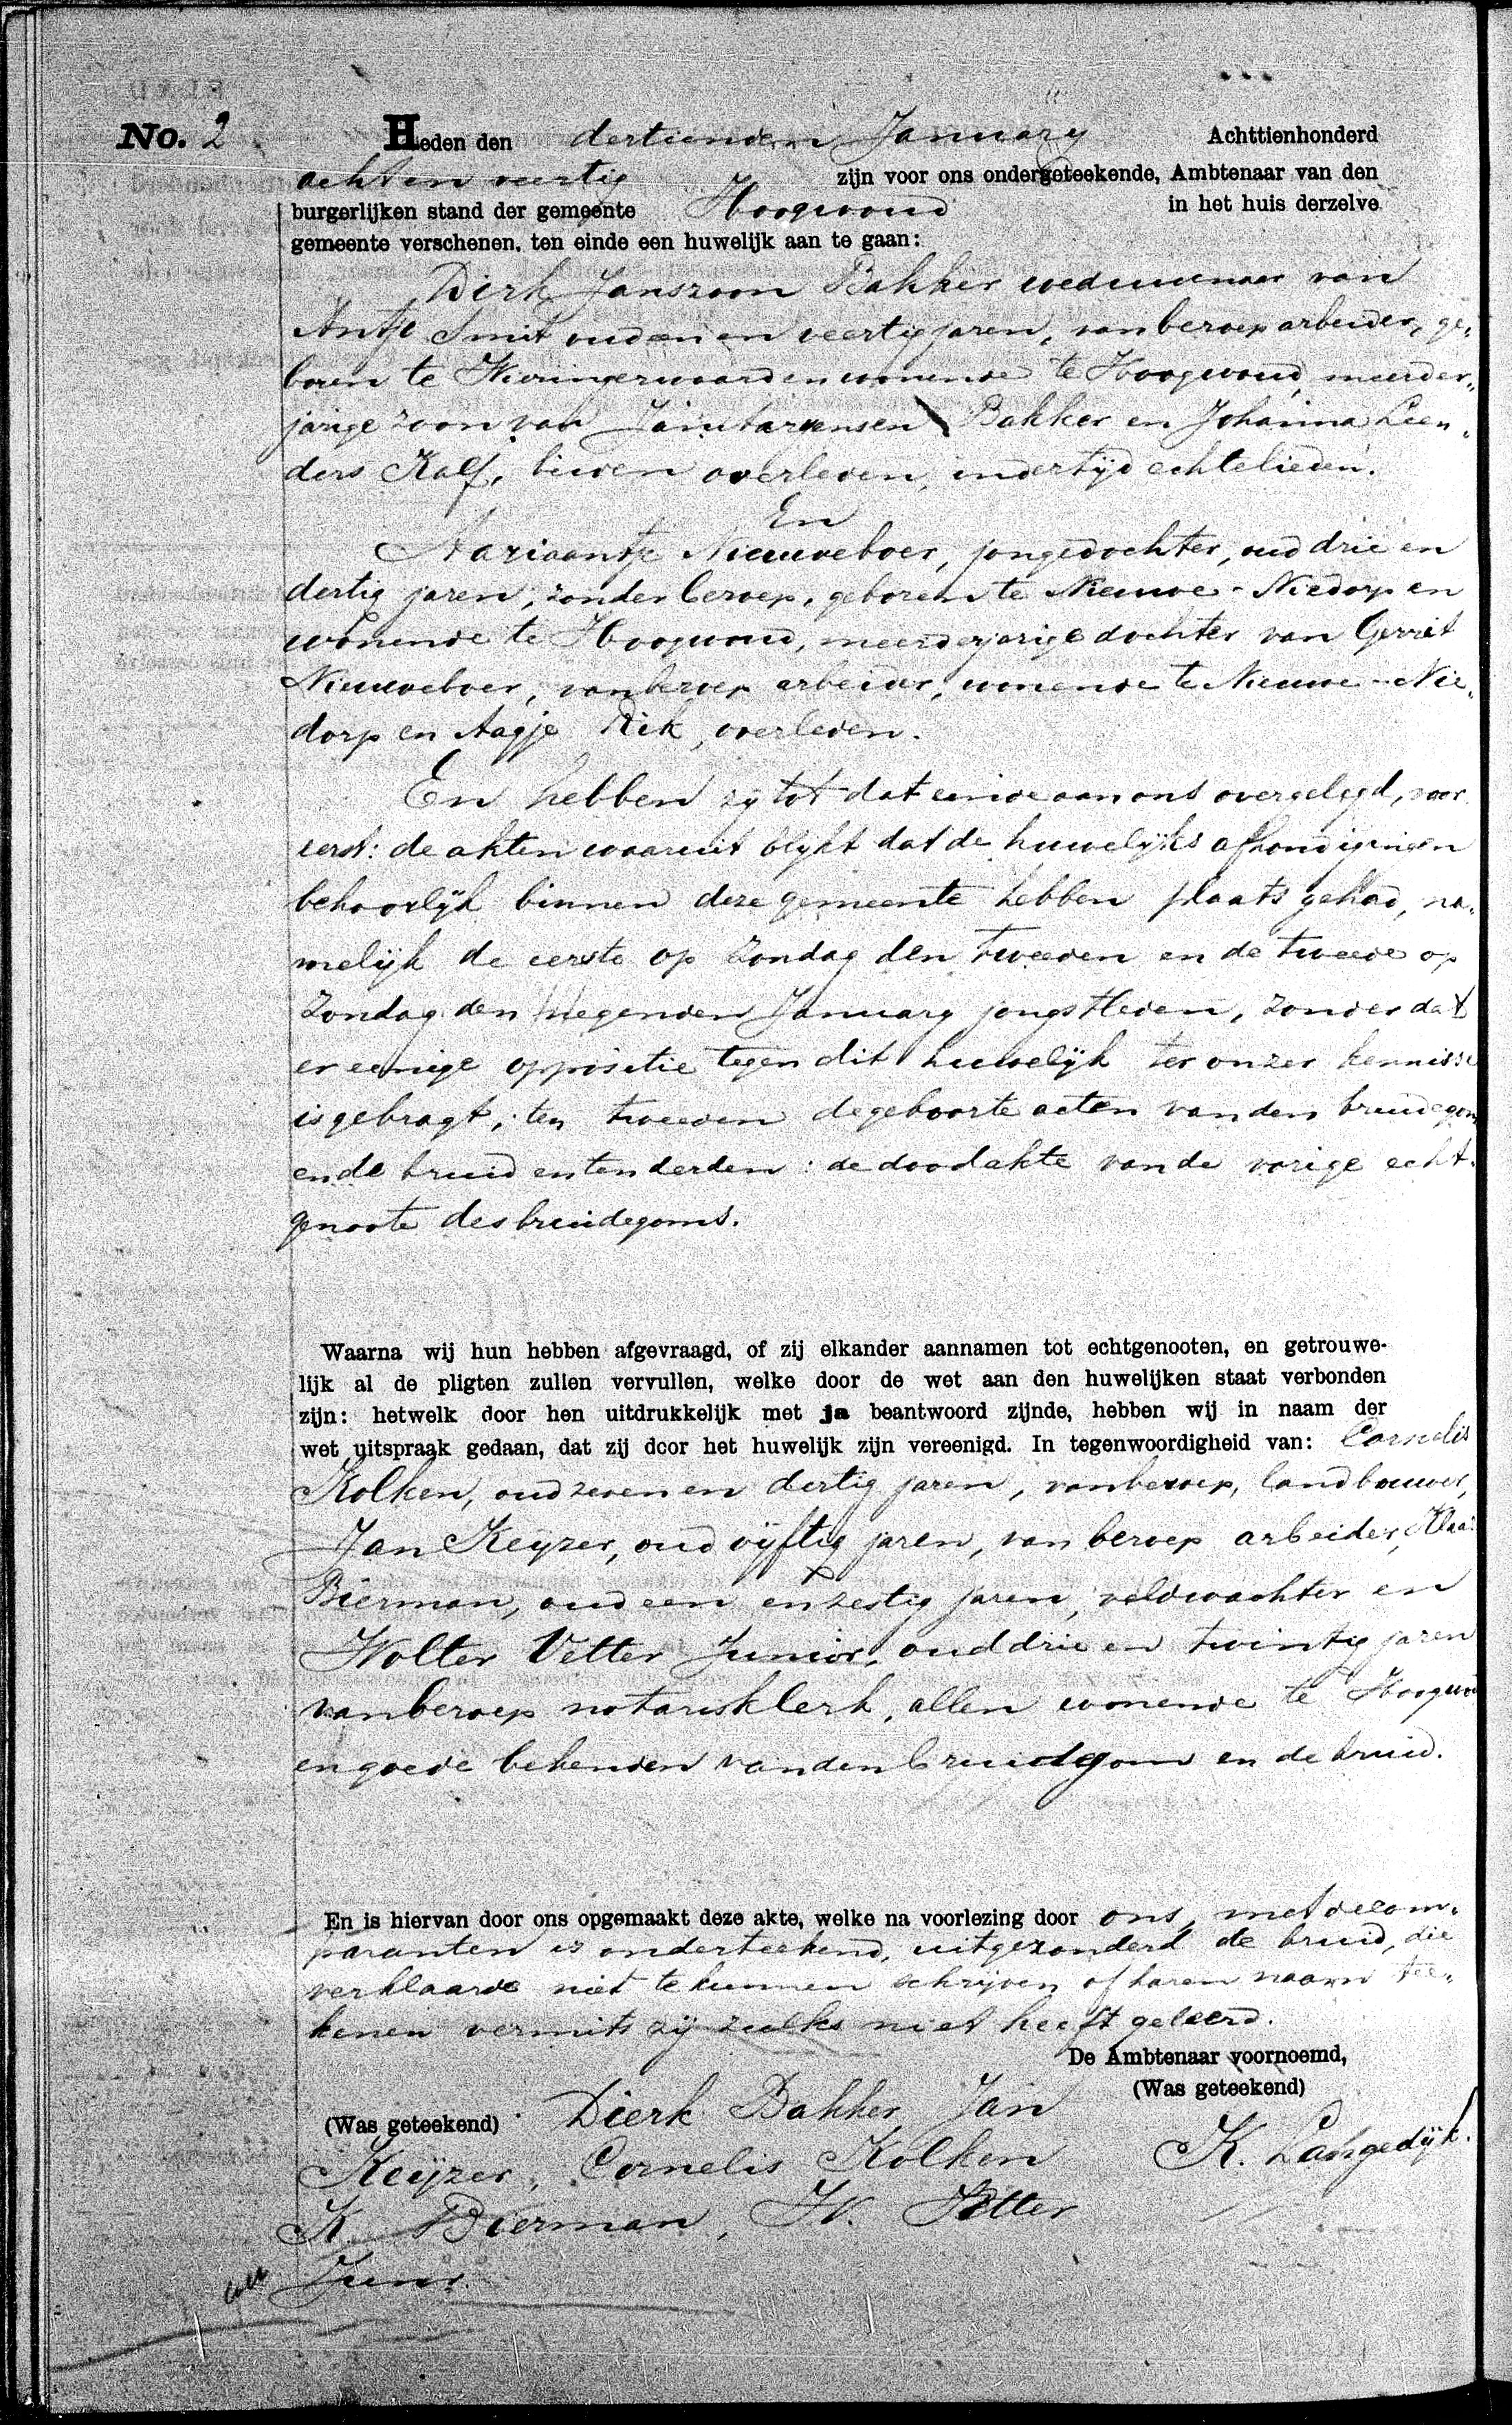 No. 2 Heden den dertienden January Achttienhonderd
acht en veertig zijn voor ons ondergeteekende, Ambtenaar van den
burgerlijken stand der gemeente Hoogwoud in het huis derzelve
gemeente verschenen, ten einde een huwelijk aan te gaan:
Dirk Janszoon Bakker weduwenaar van
Antje Smit oud een en veertig jaren, van beroep arbeider, ge„
boren te Wieringerwaard en wonende te Hoogwoud, meerder„
jarige zoon van Bakker en Johanna Leen„
ders Kalf, beiden overleden, indertijd echtelieden.
En
Ariaantje Nieuweboer, jongedochter, oud drie en
dertig jaren, zonder beroep, geboren te Nieuwe-Niedorp en
wonende te Hoogwoud, meerderjarige dochter van Gerrit
Nieuweboer, van beroep arbeider, wonende te Nieuwe-Nie„
dorp en Aagje Rik, overleden.
En hebben zij tot dat einde aan ons overgelegd, voor
eerst: de akten waaruit blijkt dat de huwelijks afkondigingen
behoorlijk binnen deze gemeente hebben plaats gehad, na„
melijk de eerste op Zondag den tweeden en de tweede op
Zondag den negenden January jongstleden, zonder dat
er eenige oppositie tegen dit huwelijk ter onzer kennisse
is gebragt; ten tweeden de geboorte acten van den bruidegom
en de bruid en ten derden: de doodakte van de vorige echt„
genoote des bruidegoms.
Waarna wij hun hebben afgevraagd, of zij elkander aannamen tot echtgenooten, en getrouwe-
lijk al de pligten zullen vervullen, welke door de wet aan den huwelijken staat verbonden
zijn: hetwelk door hen uitdrukkelijk met ja beantwoord zijnde, hebben wij in naam der
wet uitspraak gedaan, dat zij door het huwelijk zijn vereenigd. In tegenwoordigheid van: Cornelis
Kolken, oud zeven en dertig jaren, van beroep, landbouwer,
Jan Keyzer, oud vijftig jaren, van beroep arbeider, Klaas
Bierman, oud een en zestig jaren, veldwachter en
Wolter Vetter Junior, oud drie en twintig jaren
van beroep notarisklerk, allen wonende te Hoogwoud
en goede bekenden van den bruidgom en de bruid.
En is hiervan door ons opgemaakt deze akte, welke na voorlezing door ons, met de com„
paranten is onderteekend, uitgezonderd de bruid, die
verklaarde niet te kunnen schrijven of haren naam tee„
kenen vermits zij zulks niet heeft geleerd.
De Ambtenaar voornoemd,
(Was geteekend)
(Was geteekend) Dierk Bakker, Jan
Keijzer, Cornelis Kolken K. Langedijk.
K. Bierman, W. Vetter
Junr.